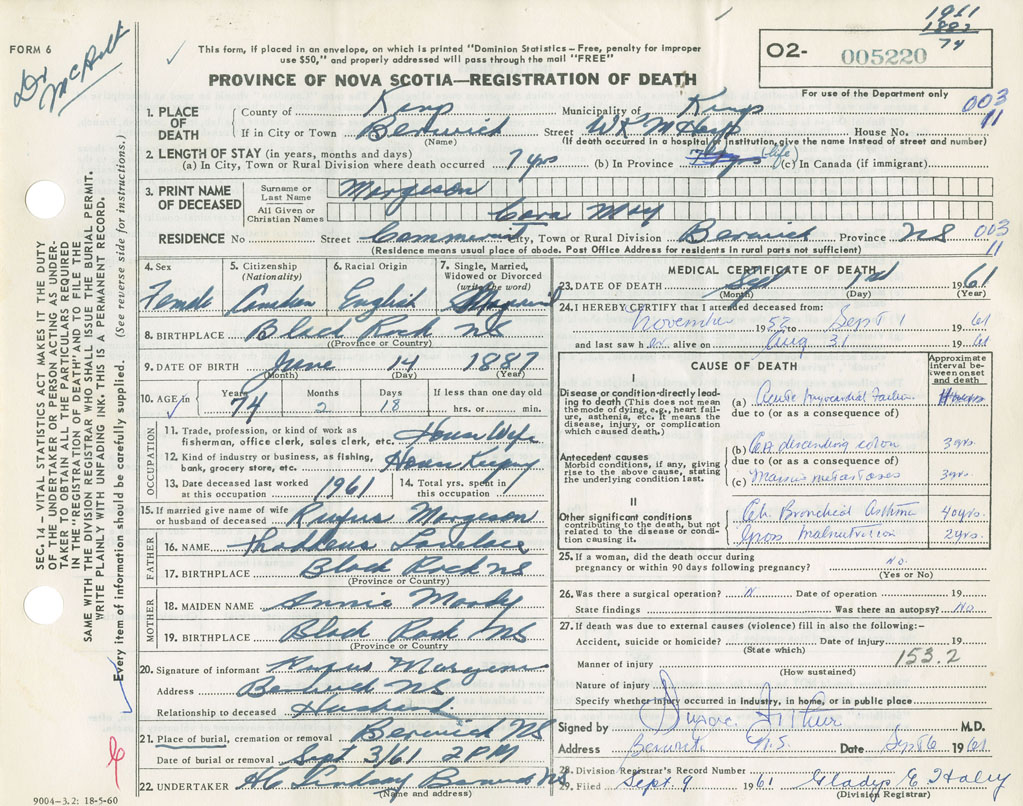 FORM 6
Dr
This form, if placed in an envelope, on which is printed "Dominion Statistics – Free, penalty for improper
use $50," and properly addressed will pass through the mail "FREE"
PROVINCE OF NOVA SCOTIA—REGISTRATION OF DEATH
1911
1882
74
O2-
005220
For use of the Department only
003
11
1. PLACE OF DEATH
County of Kings Municipality of Kings
If in City or Town Berwick Street House No.
(Name) (If death occurred in a hospital or institution, give the name instead of street and number)
2. LENGTH OF STAY (in years, months and days)
(a) In City, Town or Rural Division where death occurred 7 yrs (b) In Province life (c) In Canada (if immigrant)
3. PRINT NAME OF DECEASED
Surname or Last Name Margeson
All Given or Christian Names Cora May
RESIDENCE No Street Commercial City, Town or Rural Division Berwick Province NS
003
11
(Residence means usual place of abode. Post Office Address for residents in rural parts not sufficient)
4. Sex
Female
5. Citizenship (Nationality)
Canadian
6. Racial Origin
English
7. Single, Married, Widowed or Divorced (write the word)
Married
8. BIRTHPLACE Black Rock NS
(Province or Country)
9. DATE OF BIRTH June 14 1887
(Month) (Day) (Year)
10. AGE in Years Months Days If less than one day old
74 2 18 hrs. or min.
OCCUPATION
11. Trade, profession, or kind of work as fisherman, office clerk, sales clerk, etc. House Wife
12. Kind of industry or business, as fishing, bank, grocery store, etc. House Keeping
13. Date deceased last worked at this occupation 1961
14. Total yrs. spent in this occupation
15. If married give name of wife or husband of deceased Rufus Margeson
FATHER
16. NAME Thaddeus Lovelace
17. BIRTHPLACE Black Rock NS
(Province or Country)
MOTHER
18. MAIDEN NAME Annie Moody
19. BIRTHPLACE Black Rock NS
(Province or Country
20. Signature of informant Rufus Margeson
Address Berwick NS
Relationship to deceased Husband
21. Place of burial, cremation or removal Berwick NS
Date of burial or removal Sept 3/61 2 PM
22. UNDERTAKER NS
(Name and address)
9004–3.2: 18-5-60
MEDICAL CERTIFICATE OF DEATH
23. DATE OF DEATH Sept 1st 1961
(Month) (Day) (Year)
24. I HEREBY CERTIFY that I attended deceased from:
November 1952 to Sept 1 1961
and last saw her alive on Aug 31 1961
CAUSE OF DEATH
Approximate Interval between onset and death
I
Disease or condition directly leading to death (This does not mean the mode of dying, e.g., heart failure, asthenia, etc. It means the disease, injury, or complication which caused death.)
(a) Acute myocardial failure
due to (or as a consequence of)
Antecedent causes
Morbid conditions, if any, giving rise to the above cause, stating the underlying condition last.
(b) Ca descending colon 3 yrs.
due to (or as a consequence of)
(c) Massive metastases 3 yrs.
II
Other significant conditions
contributing to the death, but not related to the disease or condition causing it.
Ch. Bronchial Asthma 40 yrs.
Gross malnutrition 2 yrs.
25. If a woman, did the death occur during pregnancy or within 90 days following pregnancy? No.
(Yes or No)
26. Was there a surgical operation? N Date of operation 19
State findings Was there an autopsy? No
27. If death was due to external causes (violence) fill in also the following:–
Accident, suicide or homicide? Date of injury 19
(State which)
Manner of injury 153.2
(How sustained)
Nature of injury
Specify whether injury occurred in industry, in home, or in public place
Signed by M.D.
Address Berwick N.S. Date Sept 6 1961
28. Division Registrar's Record Number
29. Filed Sept. 9 1961 Gladys E Haley
(Division Registrar)
SEC. 14 – VITAL STATISTICS ACT MAKES IT THE DUTY
OF THE UNDERTAKER OR PERSON ACTING AS UNDER-
TAKER TO OBTAIN ALL THE PARTICULARS REQUIRED
IN THE "REGISTRATION OF DEATH" AND TO FILE THE
SAME WITH THE DIVISION REGISTRAR WHO SHALL ISSUE THE BURIAL PERMIT.
WRITE PLAINLY WITH UNFADING INK. THIS IS A PERMANENT RECORD.
Every item of information should be carefully supplied. (See reverse side for instructions.)